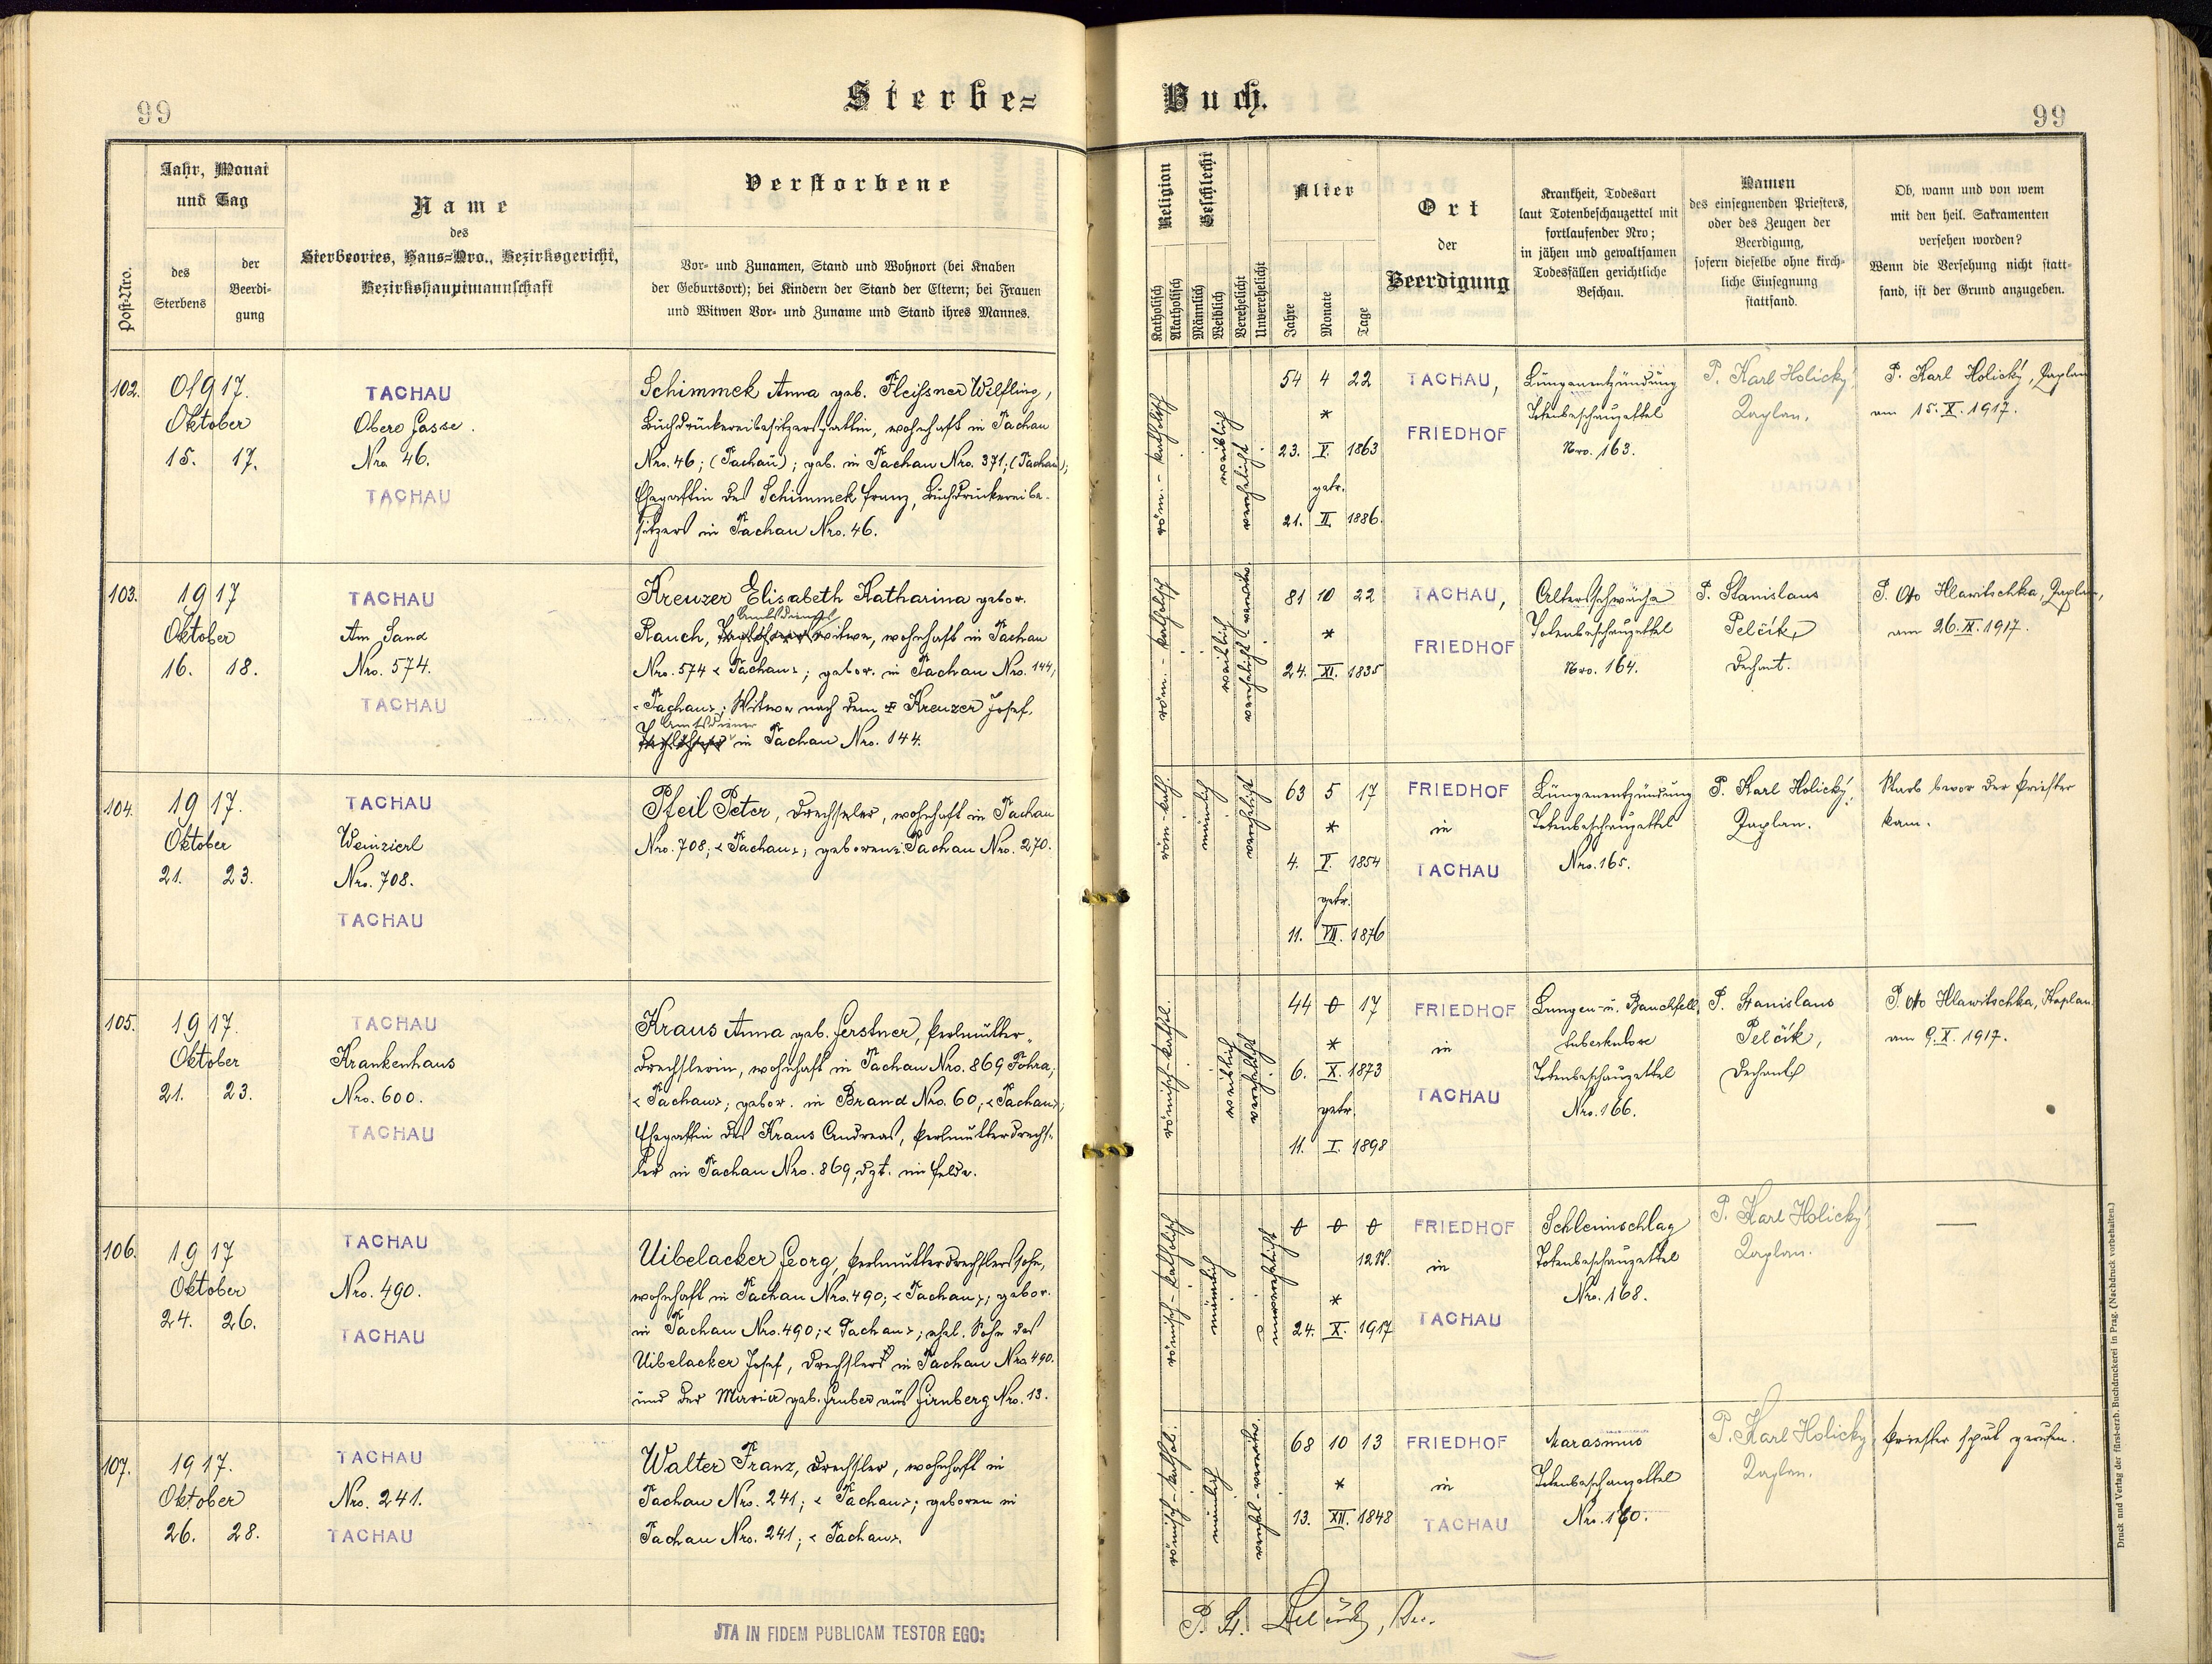 99
Sterbe=
Buch.
99
Post-Nro.
Jahr, Monat
und Tag
des
Sterbens
der
Beerdi-
gung
Name
des
Sterbeortes, Haus=Nro., Bezirksgericht,
Bezirkshauptmannschaft
Verstorbene
Vor- und Zunamen, Stand und Wohnort (bei Knaben
der Geburtsort); bei Kindern der Stand der Eltern; bei Frauen
und Witwen Vor- und Zuname und Stand ihres Mannes.
Religion
Katholisch
Akatholisch
Geschlecht
Männlich
Weiblich
Verehelicht
Unverehelicht
Alter
Jahre
Monate
Tage
Ort
der
Beerdigung
Krankheit, Todesart
laut Totenbeschauzettel mit
fortlaufender Nro;
in jähen und gewaltsamen
Todesfällen gerichtliche
Beschau.
Namen
des einsegnenden Priesters,
oder des Zeugen der
Beerdigung,
sofern dieselbe ohne kirch-
liche Einsegnung
stattfand.
Ob, wann und von wem
mit den heil. Sakramenten
versehen worden?
Wenn die Versehung nicht statt-
fand, ist der Grund anzugeben.
102.
1917.
Oktober
15. 17.
TACHAU
Obere Gasse.
Nro. 46.
TACHAU
Schimmek Anna geb. Fleissner Wilfling,
Buchdruckereibesitzersgattin, wohnhaft in Tachau
Nro. 46; (Tachau); geb. in Tachau Nro. 371; (Tachau);
Ehegattin des Schimmek Franz, Buchdruckereibe-
sitzers in Tachau Nro. 46.
röm.-katholisch
weiblich
verehelicht
54 4 22
*
23. V. 1863
getr.
21. II 1886.
TACHAU,
FRIEDHOF
Lungenentzündung
Totenbeschauzettel
Nro. 163.
P. Karl Holický,
Kaplan.
P. Karl Holický, Kaplan
am 15. X. 1917.
103.
1917
Oktober
16. 18.
TACHAU
Am Sand
Nro. 574.
TACHAU
Kreuzer Elisabeth Katharina gebor.
Amtsdieners
Rauch, Taglöhnerswitwe, wohnhaft in Tachau
Nro. 574 < Tachau >; gebor. in Tachau Nro. 144,
< Tachau >; Witwe nach dem Kreuzer Josef,
Amtsdiener
Taglöhner in Tachau Nro. 144.
röm.-katholisch
weiblich
verehelicht-verwitw.
81 10 22
*
24. XI. 1835
TACHAU,
FRIEDHOF
Altersschwäche
Totenbeschauzettel
Nro. 164.
P. Stanislaus
Pelčik,
Dechant.
P. Otto Hlawitschka, Kaplan,
am 26. IX. 1917.
104.
1917.
Oktober
21. 23.
TACHAU
Weinzierl
Nro. 708.
TACHAU
Pfeil Peter, Drechsler, wohnhaft in Tachau
Nro. 708; < Tachau >; geboren z. Tachau Nro. 270.
röm-kath.
männlich
verehelicht
63 5 17
*
4. V. 1854
getr.
11. VII. 1876
FRIEDHOF
in
TACHAU
Lungenentzündung
Totenbeschauzettel
Nro. 165.
P. Karl Holický,
Kaplan.
Starb bevor der Priester
kam.
105.
1917.
Oktober
21. 23.
TACHAU
Krankenhaus
Nro. 600.
TACHAU
Kraus Anna geb. Gerstner, Perlmutter-
drechslerin, wohnhaft in Tachau Nro. 869 Föhra,
< Tachau >; gebor. in Brand Nro. 60; < Tachau >;
Ehegattin des Kraus Andreas, Perlmutterdrechs-
ler in Tachau Nro. 869, dzt. im Felde.
römisch-kathol.
weiblich
verehelicht
44 0 17
*
6. X. 1873
getr.
11. I. 1898
FRIEDHOF
in
TACHAU
Lungen- u. Bauchfell-
tuberkulose
Totenbeschauzettel
Nro. 166.
P. Stanislaus
Pelčik,
Dechant
P. Otto Hlawitschka, Kaplan
am 9. X. 1917.
106.
1917
Oktober
24. 26.
TACHAU
Nro. 490.
TACHAU
Uibelacker Georg, Perlmutterdrechslerssohn,
wohnhaft in Tachau Nro. 490; < Tachau >; gebor.
in Tachau Nro. 490; < Tachau >; ehel. Sohn des
Uibelacker Josef, Drechslers in Tachau Nro 490.
und der Maria geb. Gruber aus Girnberg Nro. 13.
römisch-katholisch
männlich
unverehelicht
0 0 0
12 St.
*
24. X. 1917
FRIEDHOF
in
TACHAU
Schleimschlag
Totenbeschauzettel
Nro. 168.
P. Karl Holický,
Kaplan.
—
107.
1917.
Oktober
26. 28.
TACHAU
Nro. 241.
TACHAU
Walter Franz, Drechsler, wohnhaft in
Tachau Nro. 241; < Tachau >; geboren in
Tachau Nro. 241; < Tachau >.
römisch-kathol.
männlich
verehel-verwitw.
68 10 13
*
13. XII. 1848
FRIEDHOF
in
TACHAU
Marasmus
Totenbeschauzettel
Nro. 170.
P. Karl Holický,
Kaplan.
Priester spät gerufen.
JTA IN FIDEM PUBLICAM TESTOR EGO:
P. St. Pelčik, Dec.
Druck und Verlag der fürst-erzb. Buchdruckerei in Prag. (Nachdruck vorbehalten.)